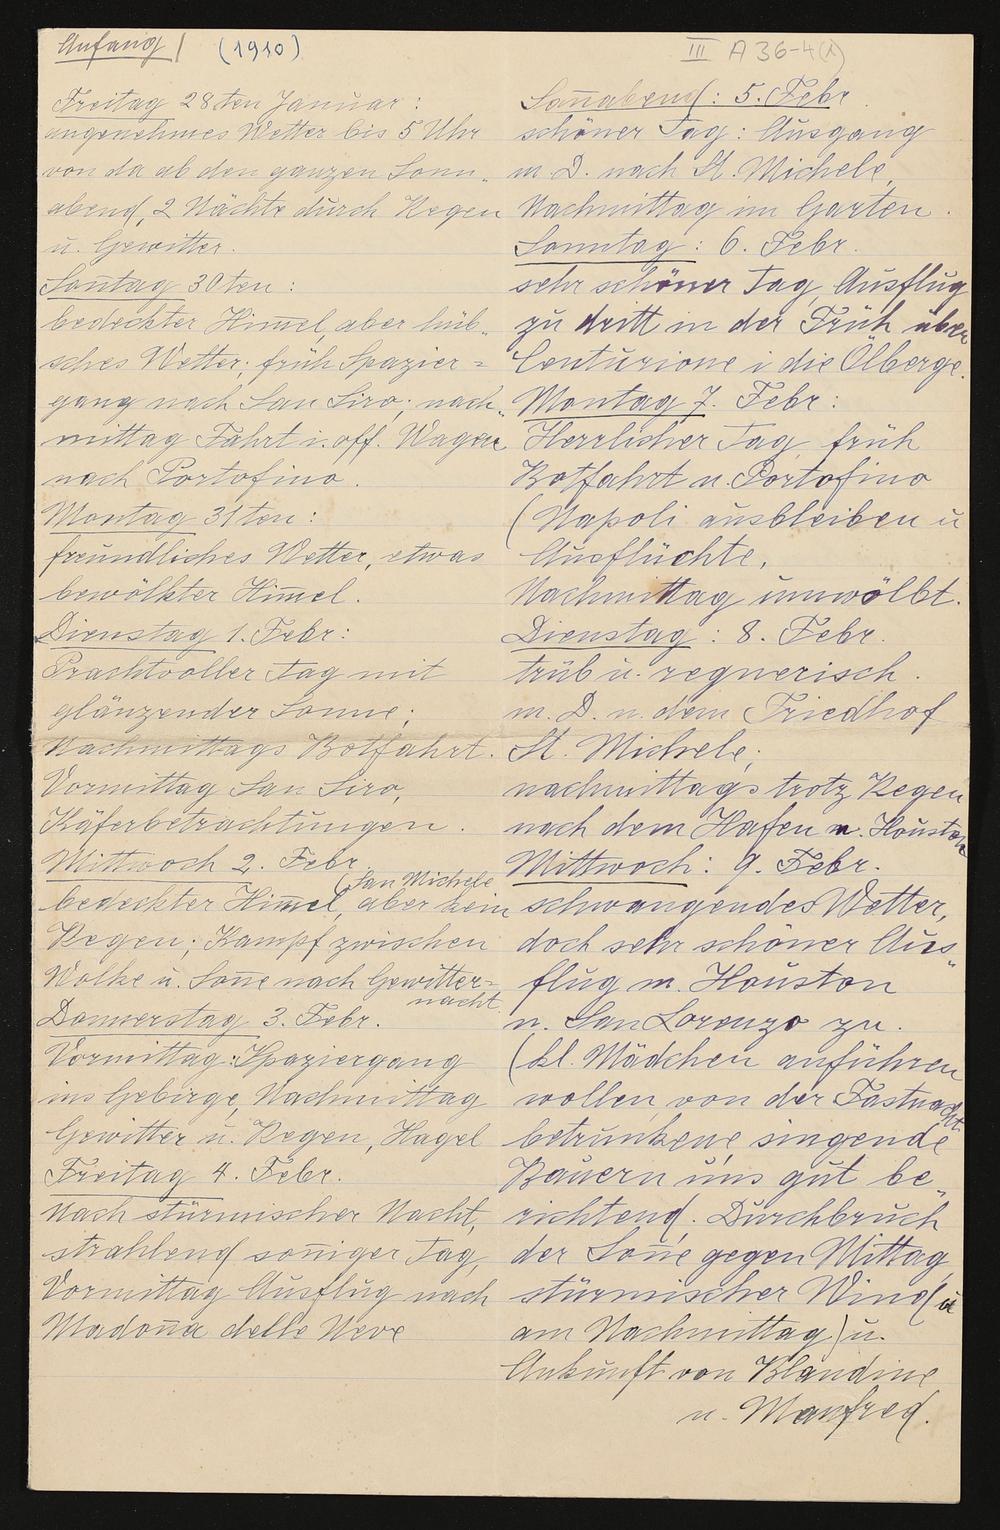 Anfang / (1910)
III A 36-4(1)
Freitag 28ten Januar :
angenehmes Wetter bis 5 Uhr
von da ab den ganzen Sonn„
abend, 2 Nächte durch Regen
u. Gewitter.
Son̄tag 30ten :
bedeckter Him̄el, aber hüb„
sches Wetter; früh Spazier=
gang nach San Siro; nach„
mittag Fahrt i. off. Wagen
nach Portofino.
Montag 31ten :
freundliches Wetter, etwas
bewölkter Him̄el.
Dienstag 1. Febr:
Prachtvoller Tag mit
glänzender Sonne;
Nachmittags Botfahrt.
Vormittag San Siro,
Käferbetrachtungen.
Mittwoch 2. Febr.
(San Michele
bedeckter Him̄el, aber kein
Regen; Kampf zwischen
Wolke u. Son̄e nach Gewitter=
nacht.
Donnerstag 3. Febr.
Vormittag: Spaziergang
ins Gebirge, Nachmittag
Gewitter u. Regen, Hagel
Freitag 4. Febr.
Nach stürmischer Nacht,
strahlend son̄iger Tag,
Vormittag Ausflug nach
Madon̄a delle Neve
San̄abend : 5. Febr.
schöner Tag : Ausgang
m. D. nach St. Michele,
Nachmittag im Garten.
Sonntag : 6. Febr.
sehr schöner Tag, Ausflug
zu dritt in der Früh über
Centurione i die Ölberge.
Montag 7. Febr :
Herrlicher Tag, früh
Botfahrt n. Portofino
(Napoli ausbleiben u
Ausflüchte,
Nachmittag umwölbt.
Dienstag : 8. Febr.
trüb u. regnerisch.
m. D. n. dem Friedhof
St. Michele;
nachmittags trotz Regen
nach dem Hafen m. Houston
Mittwoch : 9. Febr.
schwangendes Wetter,
doch sehr schöner Aus„
flug m. Houston
n. San Lorenzo zu.
(kl. Mädchen anführen
wollen, von der Fastnacht
betrunkene, singende
Bauern uns gut be„
richtend. Durchbruch
der Son̄e gegen Mittag
stürmischer Wind (u
am Nachmittag) u.
Ankunft von Blandine
u. Manfred.